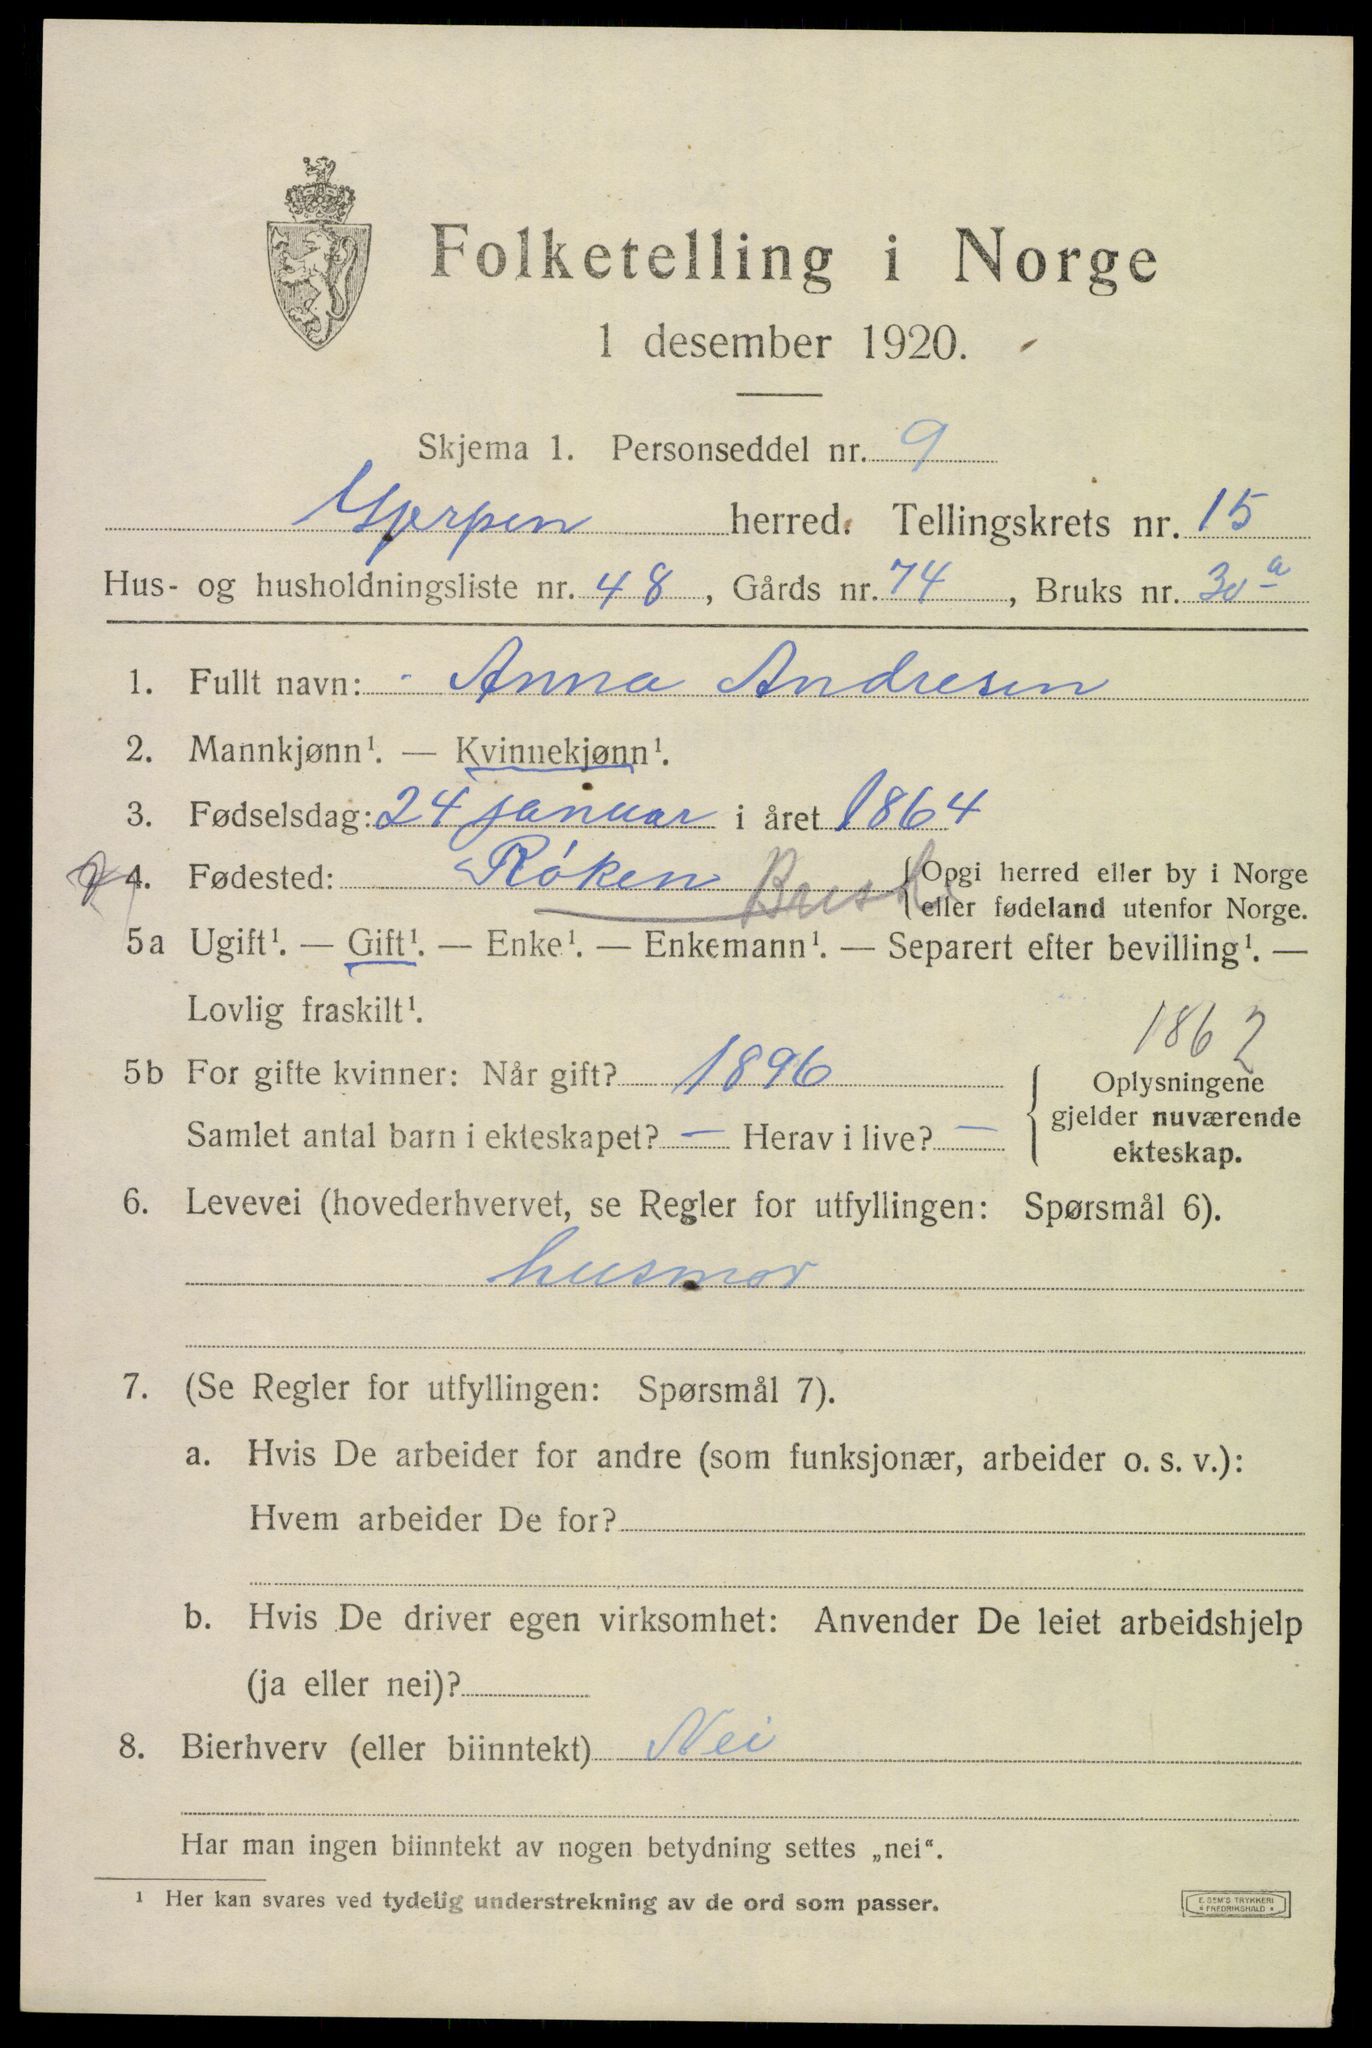 Folketelling i Norge
1 desember 1920.
Skjema 1. Personseddel nr. 9
Gjerpen herred. Tellingskrets nr. 15
Hus- og husholdningsliste nr. 48, Gårds nr. 74, Bruks nr. 30 a
1. Fullt navn: Anna Andresen
2. Mannkjønn¹. — Kvinnekjønn¹.
3. Fødselsdag: 24 januar i året 1864
4. Fødested: Røken {Opgi herred eller by i Norge
eller fødeland utenfor Norge.
5a Ugift¹. — Gift¹. — Enke¹. — Enkemann¹. — Separert efter bevilling¹. —
Lovlig fraskilt¹.
1862
5b For gifte kvinner: Når gift? 1896
Samlet antal barn i ekteskapet? — Herav i live? —
{Oplysningene
gjelder nuværende
ekteskap.
6. Levevei (hovederhvervet, se Regler for utfyllingen: Spørsmål 6).
husmor
7. (Se Regler for utfyllingen: Spørsmål 7).
a. Hvis De arbeider for andre (som funksjonær, arbeider o. s. v.):
Hvem arbeider De for?
b. Hvis De driver egen virksomhet: Anvender De leiet arbeidshjelp
(ja eller nei)?
8. Bierhverv (eller biinntekt) Nei
Har man ingen biinntekt av nogen betydning settes „nei“.
¹ Her kan svares ved tydelig understrekning av de ord som passer.
E. SEM'S TRYKKERI
* FREDRIKSHALD *